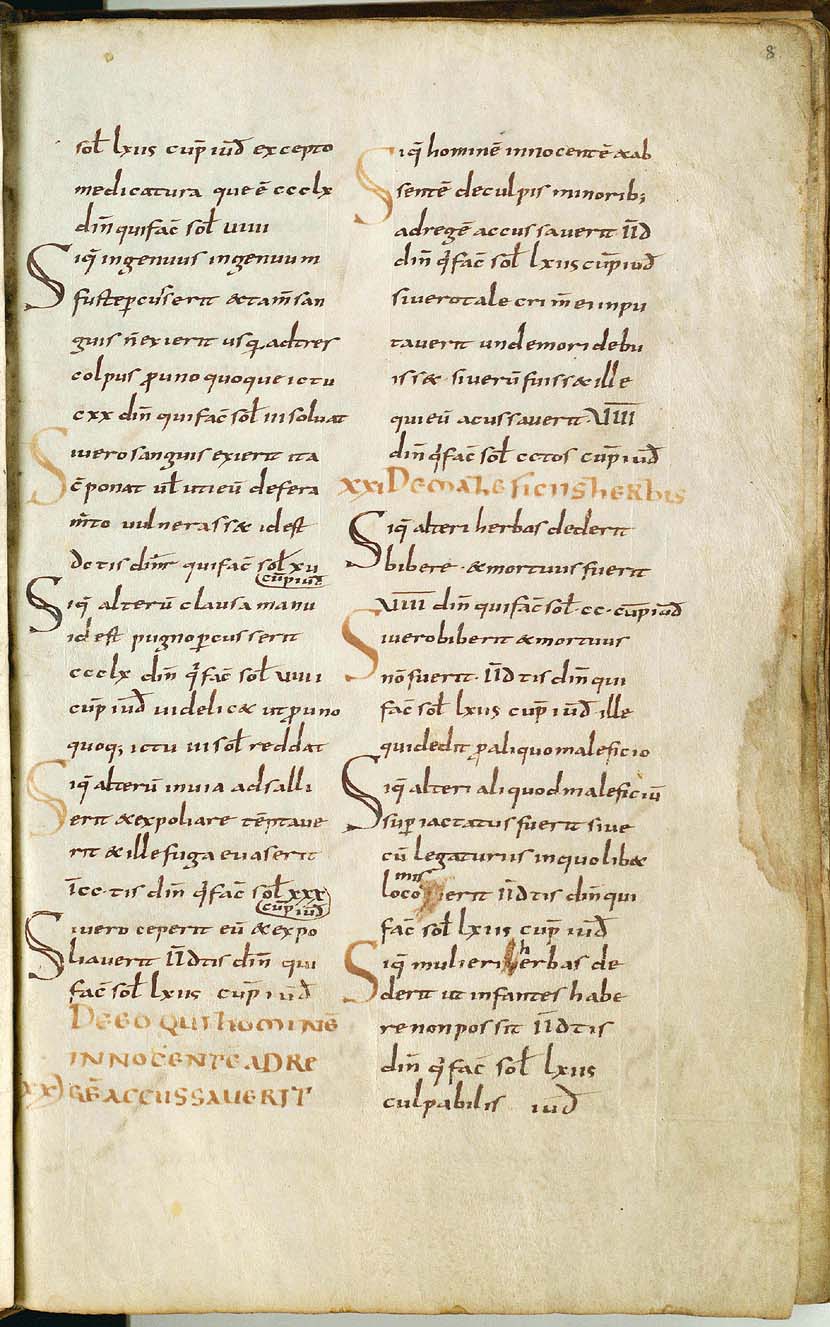 8
sol̄ lxiis cup̄ iūd excepto
medicatura que ē ccclx
din̄ qui fac̄ sol̄ uiiii
Siq̄ ingenuus ingenuum
fuste percusserit & tam̄ san
guis n̄ exierit usq; ad tres
colpus p̱ uno quoque ictu
cxx din̄ qui fac̄ sol̄ iii soluat
Si uero sanguis exierit ita
c̄ponat ul̄ uti eū de fera
m̄to uulnerass& id est
dc tis din̄ qui fac̄ sol̄ xu
cup̄ iūd
Siq̄ alterū clausa manu
id est pugno percusserit
ccclx din̄ q̄ fac̄ sol̄ uiiii
cup̄ iūd uidelic& ut p̱ uno
quoq; ictu iii sol̄ reddat
Siq̄ alterū in uia adsalli
erit & expoliare tēptaue
rit & ille fuga euaserit
īcc tis din̄ q̄ fac̄ sol̄ xxx
cup̄ iūd
Si uero ceperit eū & expo
liauerit īīd tis din̄ qui
fac̄ sol̄ lxiis cup̄ iūd
DE EO QUI HOMINĒ
INNOCENTĒ AD RE
XX GĒ ACCUSSAUERIT
Siq̄ hominē innocentē & ab
sentē de culpis minorib;
ad regē accussauerit īīd
din̄ q̄ fac̄ sol̄ lxiis cup̄ iūd
si uero tale crim̄ ei inpu
tauerit unde mori debu
iss& si uerū fuiss& ille
qui eū acussauerit ūīīī
din̄ q̄ fac̄ sol̄ cctos cup̄ iūd
XXI DE MALEFICIIS HERBIS
Siq̄ alteri herbas dederit
bibere & mortuus fuerit
ūīīī din̄ qui fac̄ sol̄ cc cup̄ iūd
Si uero biberit & mortuus
non fuerit īīd tis din̄ qui
fac̄ sol̄ lxiis cup̄ iūd ille
qui dedit p̱ aliquo maleficio
Siq̄ alteri aliquod maleficiū
sup̄ iactatus fuerit siue
cū legaturiis in quolib&
mis
loco erit īīd tis din̄ qui
fac̄ sol̄ lxiis cup̄ iūd
Siq̄ mulieri herbas de
derit ut infantes habe
re non possit īīd tis
din̄ q̄ fac̄ sol̄ lxiis
culpabilis iūd